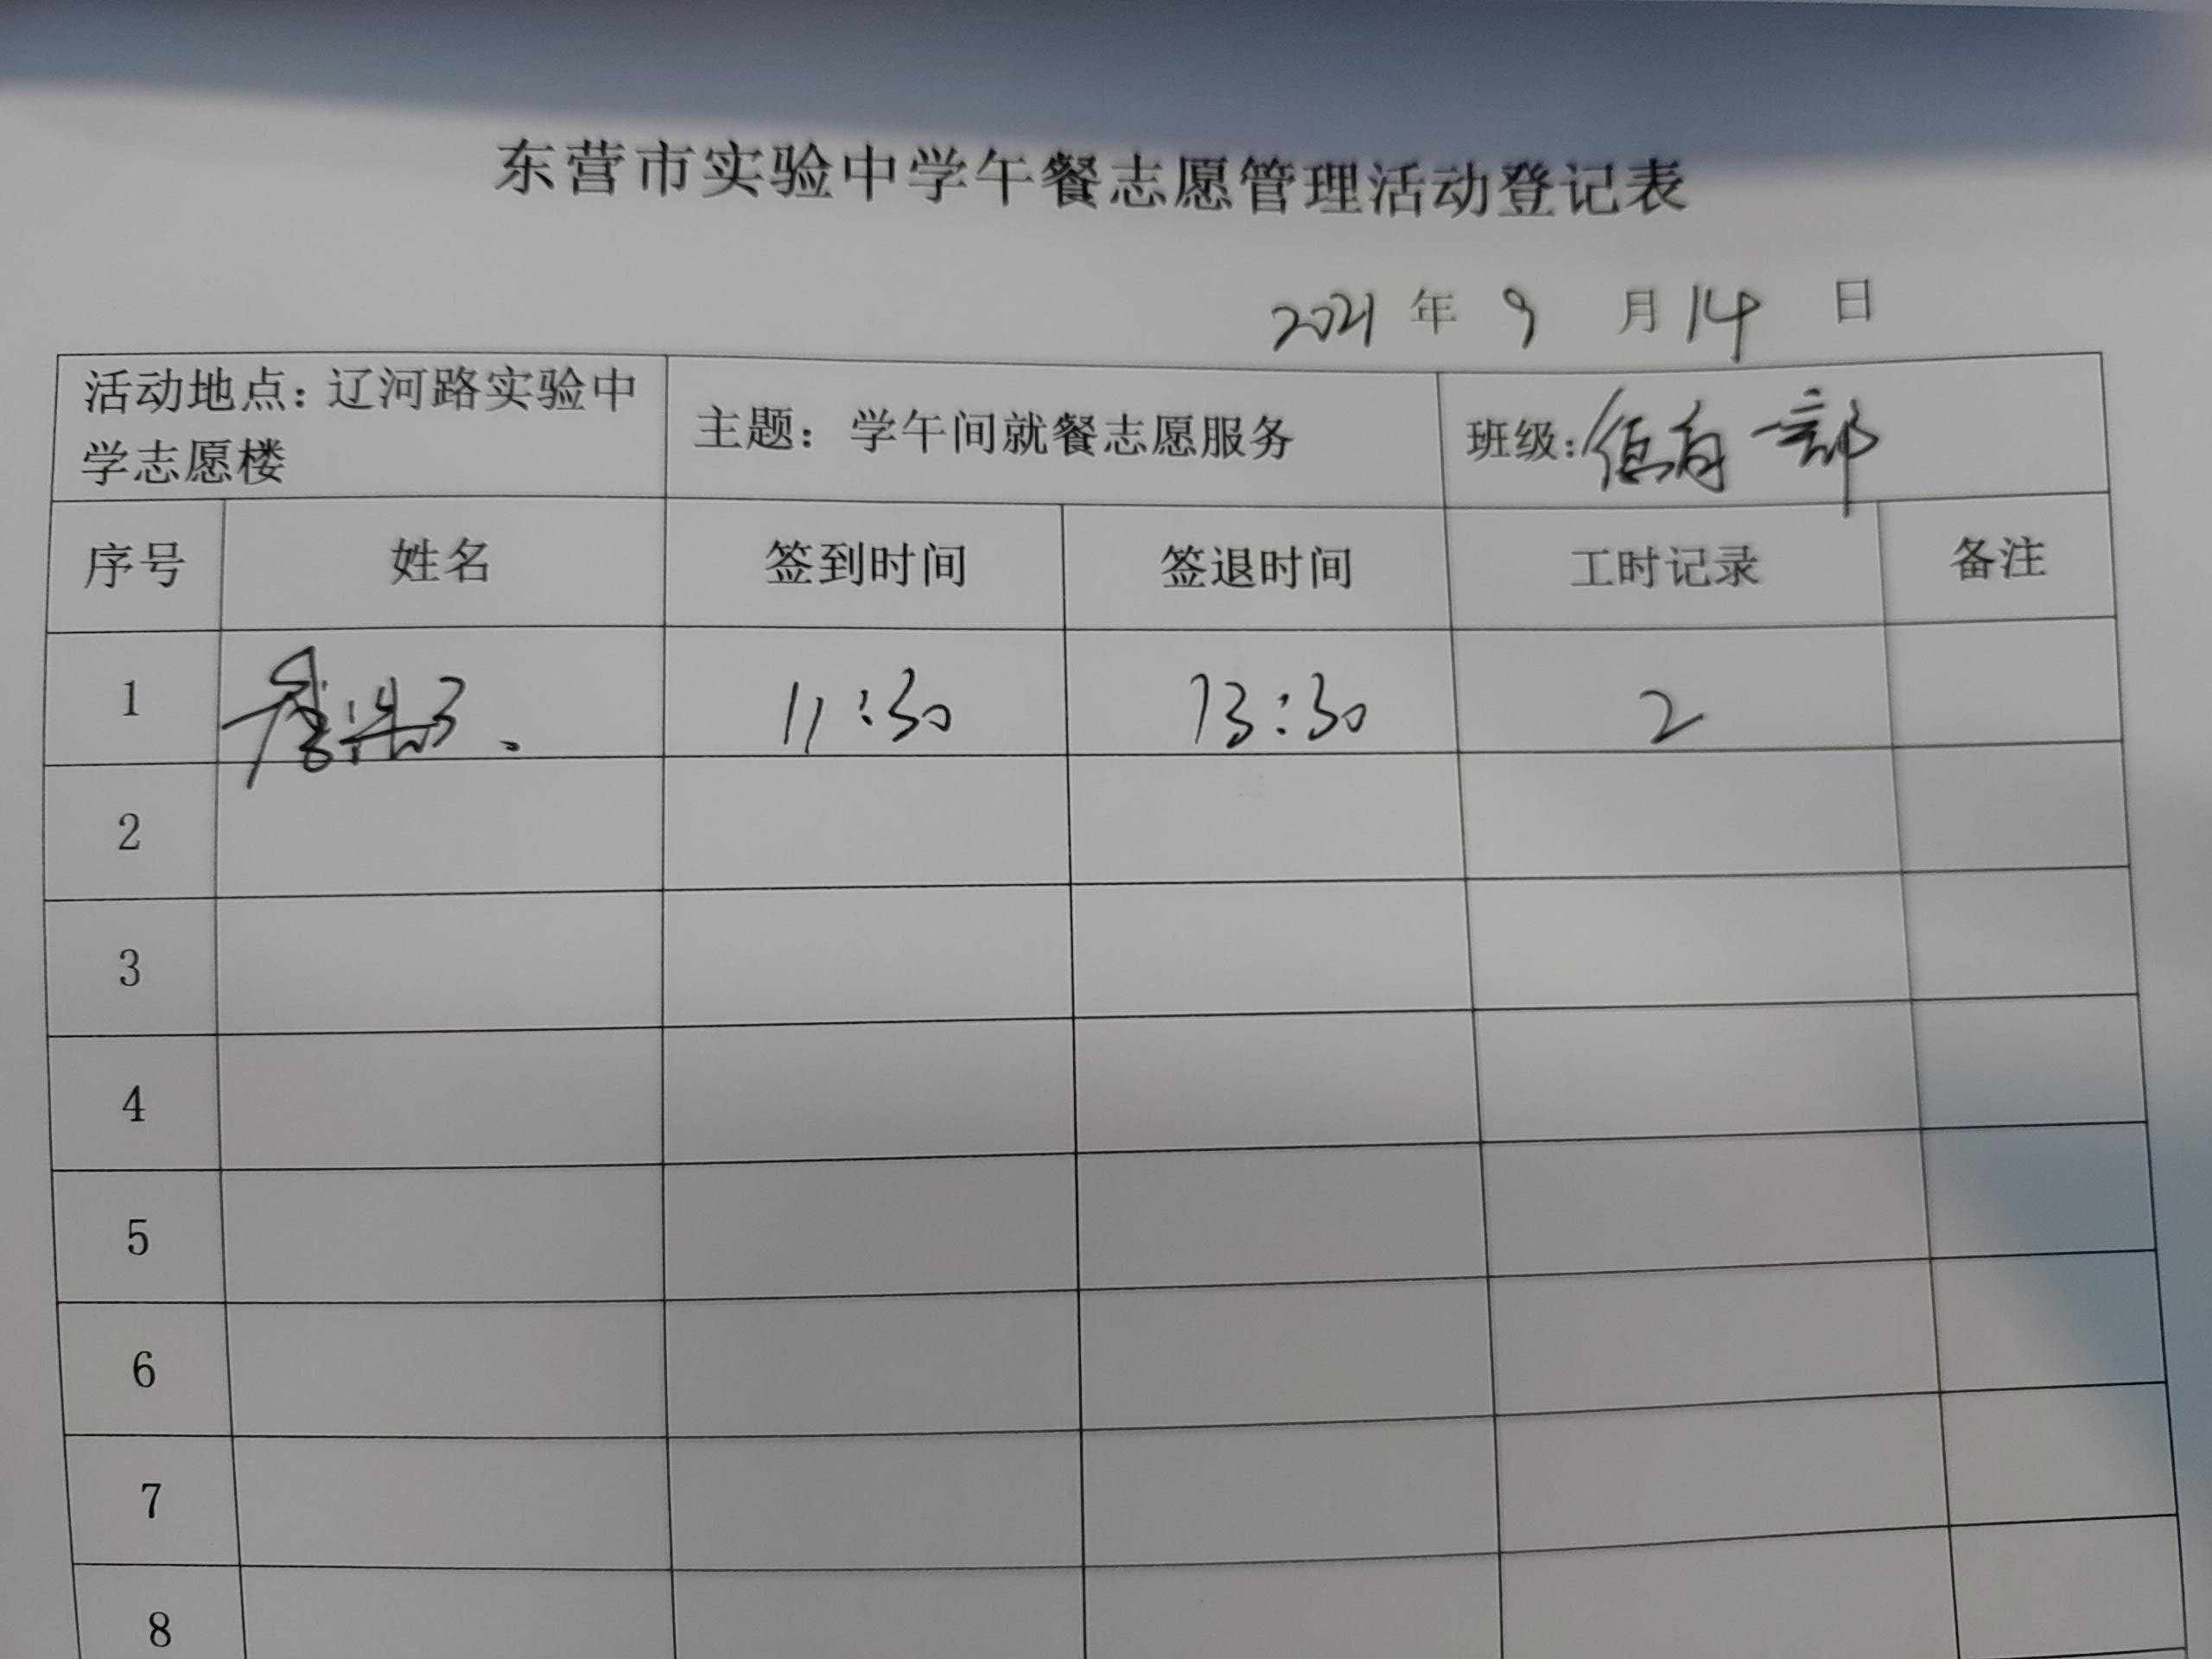 东营市实验中学午餐志愿管理活动登记表
2021 年 9 月 14 日
活动地点：辽河路实验中
学志愿楼
主题：学午间就餐志愿服务
班级：
序号 姓名 签到时间 签退时间 工时记录 备注
1 11:30 13:30 2
2
3
4
5
6
7
8